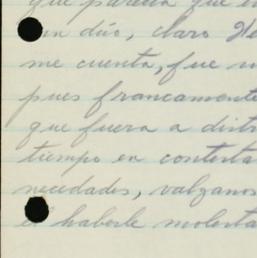 que parecía que
un dúo, claro
me cuenta, fue
pues francamente
que fuera a distr
tiempo en contesta
necedades, valganos
el haberle molesta